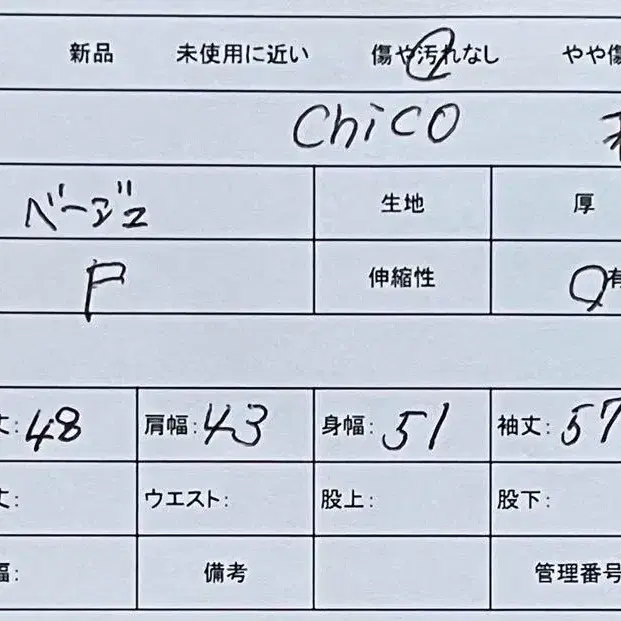 新品 未使用に近い 傷や汚れなし やや傷
Chico
ベージュ 生地 厚
F 伸縮性 有
丈:48 肩幅:43 身幅:51 袖丈:57
丈: ウエスト: 股上: 股下:
幅: 備考 管理番号